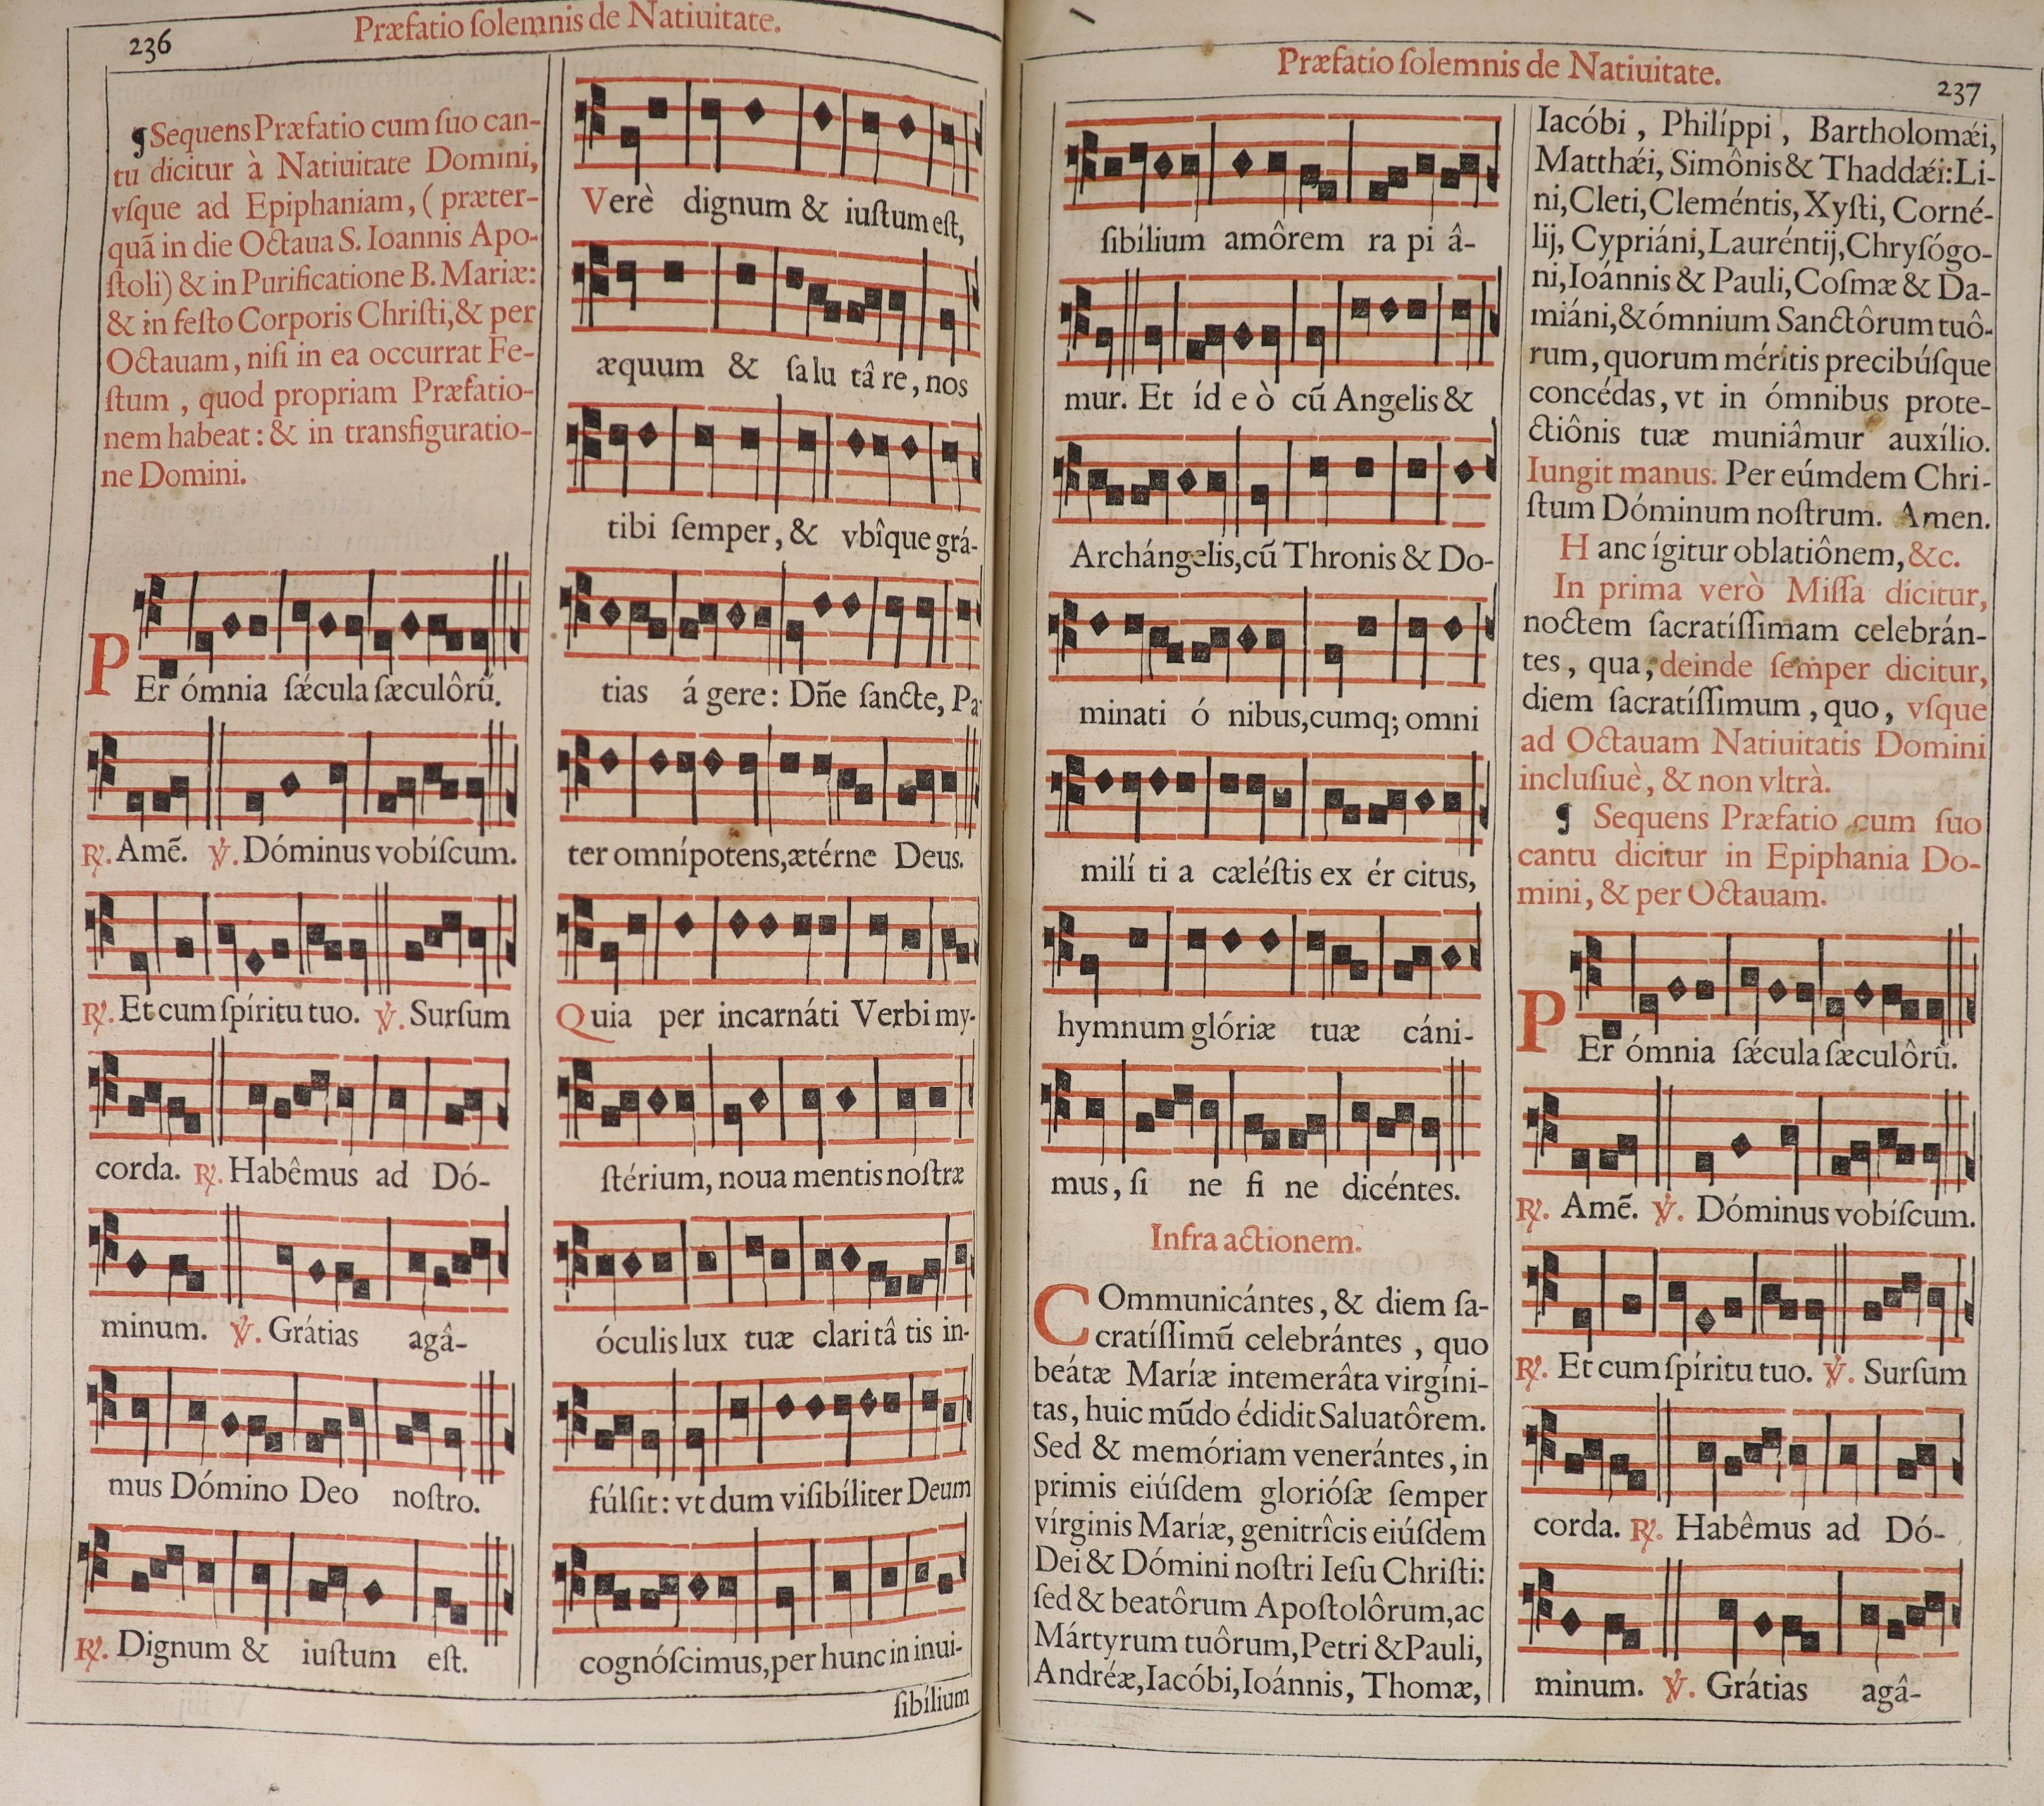 236
Præfatio ſolemnis de Natiuitate.
¶ Sequens Præfatio cum ſuo can-
tu dicitur à Natiuitate Domini,
vſque ad Epiphaniam, ( præter-
quã in die Octaua S. Ioannis Apo-
ſtoli) & in Purificatione B. Mariæ:
& in feſto Corporis Chriſti, & per
Octauam, niſi in ea occurrat Fe-
ſtum , quod propriam Præfatio-
nem habeat : & in transfiguratio-
ne Domini.
PEr ómnia ſǽcula ſæculôrũ.
℟. Amẽ. ℣. Dóminus vobíſcum.
℟. Et cum ſpíritu tuo. ℣. Surſum
corda. ℟. Habêmus ad Dó-
minum. ℣. Grátias agâ-
mus Dómino Deo noſtro.
℟. Dignum & iuſtum eſt.
Verè dignum & iuſtum eſt,
æquum & ſa lu tâ re , nos
tibi ſemper , & vbîque grá-
tias á gere : Dñe ſancte, Pa-
ter omnípotens, ætérne Deus.
Quia per incarnáti Verbi my-
ſtérium, noua mentis noſtræ
óculis lux tuæ clari tâ tis in-
fúlſit : vt dum viſibíliter Deum
cognóſcimus, per hunc in inui-
ſibílium
Præfatio ſolemnis de Natiuitate.
237
ſibílium amôrem ra pi â-
mur. Et íd e ò cũ Angelis &
Archángelis, cũ Thronis & Do-
minati ó nibus, cumq; omni
milí ti a cæléſtis ex ér citus,
hymnum glóriæ tuæ cáni-
mus , ſi ne fi ne dicéntes.
Infra actionem.
COmmunicántes , & diem ſa-
cratíſſimũ celebrántes , quo
beátæ Maríæ intemerâta virgíni-
tas , huic mũdo édidit Saluatôrem.
Sed & memóriam venerántes , in
primis eiúſdem glorióſæ ſemper
vírginis Maríæ, genitrîcis eiúſdem
Dei & Dómini noſtri Ieſu Chriſti:
ſed & beatôrum Apoſtolôrum, ac
Mártyrum tuôrum, Petri & Pauli,
Andréæ, Iacóbi, Ioánnis, Thomæ,
Iacóbi , Philíppi , Bartholomǽi,
Matthǽi, Simônis & Thaddǽi: Li-
ni, Cleti, Cleméntis, Xyſti, Corné-
lij, Cypriáni, Lauréntij, Chryſógo-
ni, Ioánnis & Pauli, Coſmæ & Da-
miáni, & ómnium Sanctôrum tuô-
rum, quorum méritis precibúſque
concédas, vt in ómnibus prote-
ctiônis tuæ muniâmur auxílio.
Iungit manus. Per eúmdem Chri-
ſtum Dóminum noſtrum. Amen.
H anc ígitur oblatiônem, &c.
In prima verò Miſſa dicitur,
noctem ſacratíſſimam celebrán-
tes , qua, deinde ſemper dicitur,
diem ſacratíſſimum , quo , vſque
ad Octauam Natiuitatis Domini
incluſiuè , & non vltrà.
¶ Sequens Præfatio cum ſuo
cantu dicitur in Epiphania Do-
mini , & per Octauam.
PEr ómnia ſǽcula ſæculôrũ.
℟. Amẽ. ℣. Dóminus vobíſcum.
℟. Et cum ſpíritu tuo. ℣. Surſum
corda. ℟. Habêmus ad Dó-
minum. ℣. Grátias agâ-